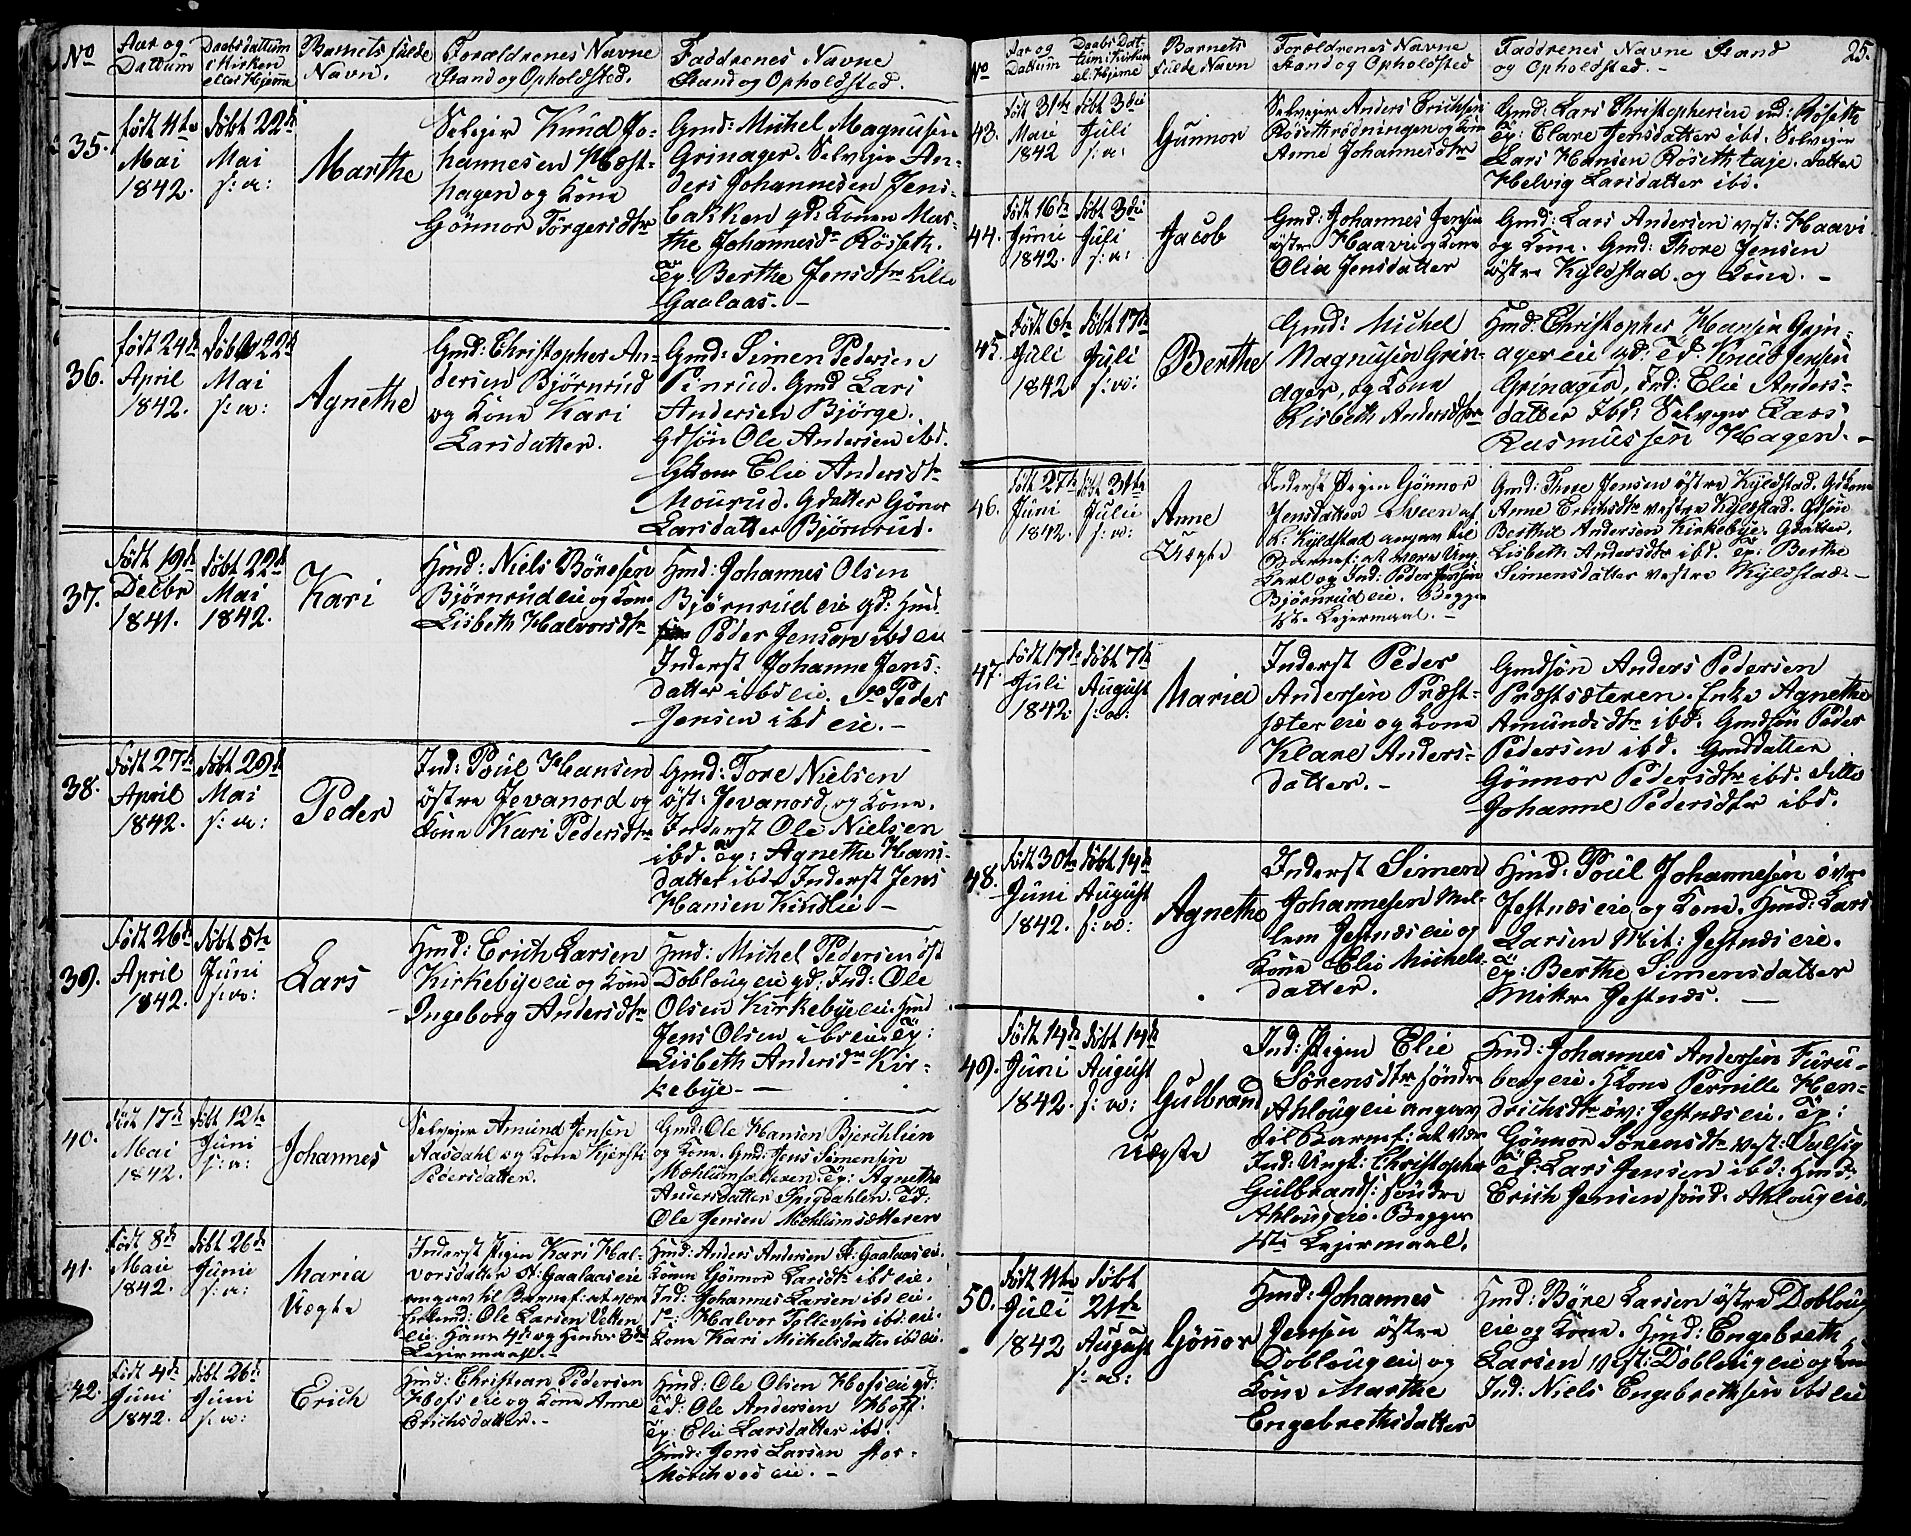 No
Aar og
Dattum
Daabsdattum
i Kirken
eller Hjeme
Barnets fulde
Navn.
Forældrenes Navne
Stand og Opholdsted.
Faddrenes Navne
Stand og Opholdsted.
35.
født 4te
Mai
1842.
døbt 22d
Mai
s: a:
Marthe
Selveier Knud Jo-
hannesen Hæst-
hagen og Kone
Gønnor Torgersdtr
Gmd: Michel Magnusen
Grinager. Selveier An-
ders Johannesen Jens-
bakken gd: Konen Mar-
the Johannesdr Røseth.
Tp: Berthe Jensdtr Lille
Gaalaas. -
36.
født 24d
April
1842.
døbt 22d
Mai
s: a:
Agnethe
Gmd: Christopher An-
dersen Bjørnrud
og Kone Kari
Larsdatter.
Gmd: Simen Pedersen
Pinrud. Gmd Lars
Andersen Bjørge.
Gdsøn Ole Andersen ibd.
Gkone Elie Andersdtr
Mourud. Gdatter Gønor
Larsdatter Bjørnrud.
37.
Født 19de
Decbr
1841.
døbt 22d
Mai
1842.
Kari
Hmd: Niels Børesen
Bjørnrudeie og Kone
Lisbeth Halvorsdtr
Hmd: Johannes Olsen
Bjørnrudeie gd: Hmd.
Peder Jensen ibd eie
Inderst Johanne Jens-
datter ibd eie. Peder
Jensen ibd eie. -
38.
Født 27d
April
1842.
døbt 29d
Mai
s: a:
Peder
Ind: Poul Hansen
østre Jevanord og
Kone Kari Pedersdtr
Gmd: Tore Nielsen
øst: Jevanord, og Kone.
Inderst Ole Nielsen
ibd. Tp: Agnethe Hans-
datter ibd. Inderst Jens
Hansen Kindlie. -
39.
Født 26d
April
1842.
døbt 5te
Juni
s: a:
Lars
Hmd: Erich Larsen
Kirkebyeeie og Kone
Ingeborg Andersdtr
Hmd: Michel Pedersen øst
Doblougeie gd: Ind: Ole
Olsen Kirkebyeeie. Hmd
Jens Olsen ibd eie. Tp:
Lisbeth Andersdr Kir-
kebye. -
40.
Født 17d
Mai
1842.
døbt 12te
Juni
s: a:
Johannes
Selveier Amund Jensen
Aasdahl og Kone Kjersti
Pedersdatter.
Gmd: Ole Hansen Bjerchlien
og Kone. Gmd: Jens Simensen
Mohlumsæteren. Tp: Agnethe
Andersdatter Snigdahlen. Td:
Ole Jensen Mæhlumsætteren
41.
født 8d
Mai
1842.
døbt 26de
Juni
s: a:
Maria
Uægte
Inderst Pigen Kari Hal-
vorsdatter St: Gaalaaseie
angav til Barnef: at være
Ole Larsen Vetten
eie. Hans 4de og Hendes 3de
Leiermaal. -
Hmd: Anders Andersen St: Gaalaaseie.
Konen Gønnor Larsdtr ibd eie.
Ind: Johannes Larsen ibd eie.
Halvor Tollevsen ibd: eie.
Kone Kari Michelsdatter ibd eie.
42.
født 4d
Juni
1842.
døbt 26d:
Juni
s: a:
Erich
Hmd: Christian Pedersen
Hofseie og Kone Anne
Erichsdatter. -
Hmd: Ole Olsen Hofseie gd:
Td: Ole Andersen Hoff.
Tp: Elie Larsdatter ibd.
Hmd: Jens Larsen Stor-
Mørchvedeie. -
25.
No
Aar og
Dattum
Daabs Dat-
tum i Kirken
el: Hjeme
Barnets
fulde Navn
Forældrenes Navne
Stand og Opholdsted
Faddrenes Navne Stand
og Opholdsted. -
43.
født 31te
Mai
1842
døbt 3die
Juli
s: a:
Gunnor
Selveier Anders Erichsen
Røsethrødningen og Kone
Anne Johannesdtr
Gmd: Lars Christophersen nd: Røseth
Tp: Clare Jensdatter ibd. Selveier
Lars Hansen Røsethtaje. datter
Helvig Larsdatter ibd.
44.
født 16de
Juni
1842.
døbt 3die
Juli
s: a:
Jacob
Gmd: Johannes Jensen
østre Haavi og Kone
Olia Jensdatter
Gmd: Lars Andersen vest: Haavi
og Kone. Gmd: Thore Jensen
østre Kyldstad og Kone. -
45.
Født 6te
Juli
1842
døbt 17de
Juli
s: a:
Berthe
Gmd: Michel
Magnusen Grin-
ager, og Kone
Lisbeth Andersdtr
Hmd: Christopher Hansen Grin-
agereie gd: Td Knud Jensen
Grinager, Ind: Elie Anders-
datter Ibd: Selveier Lars
Rasmussen Hagen. -
46.
Født 27de
Juni
1842.
døbt 31te
Juli
s: a:
Anne
Uægte
Inderst Pigen Gønnor
Jensdatter Sveen af
Kyldstad angav til
Barnef: at være Ung-
karl og Ind: Peder Jensen
Bjørnrudeie. Begges
1ste Leiermaal. -
Gmd: Thore Jensen østre Kyldstad. Gdkone
Anne Erichsdtr vestre Kyldstad. Gdsøn
Berthel Andersen Kirkebye. Gdatter.
Lisbeth Andersdtr ibd. Tp: Berthe
Simensdatter vestre Kyldstad. -
47.
født 17de
Juli
1842.
døbt 7de
August
s: a:
Maria
Inderst Peder
Andersen Præst-
sætereie og Kone
Klare Anders-
datter. -
Gmdsøn Anders Pedersen
Præstsæteren. Enke Agnethe
Amundsdtr ibd. Gmdsøn Peder
Pedersen ibd. Gmddatter
Gønnor Pedersdtr ibd. ditto
Johanne Pedersdtr ibd.
48.
Født 30te
Juni
1842.
døbt 14de
August
s: a:
Agnethe
Inderst Simen
Johannesen Mel-
lem Jestnæseie og
Kone Elie Michels-
datter.
Hmd: Poul Johannesen øvre
Jestnæseie og Kone. Hmd: Lars
Larsen Mit: Jestnæseie.
Tp: Berthe Simensdatter
Mitre Jestnæs. -
49.
Født 14de
Juni
1842.
døbt 14de
August
s: a:
Gulbrand
Uægte
Ind: Pigen Elie
Sørensdtr søndre
Ahlougeie angav
til Barnef: at være
Ind: Ungk: Christopher
Gulbrands: søndre
Ahlougeie. Begges
1ste Leiermaal.
Hmd: Johannes Andersen Furu-
bergeie. Hkone Pernille Hen-
drichsdtr øv: Jestnæseie. Tp:
Gønnor Sørensdtr vest: Kvelsig
Td: Lars Jensen ibd: Hmd:
Erich Jensen sønd: Ahlougeie.
50.
Født 4te
Juli
1842
døbt
21de
August
s: a:
Gønnor
Hmd: Johannes
Jensen østre
Doblougeie og
Kone Marthe
Engebrethsdatter
Hmd: Børe Larsen østre Doblaug
eie og Kone. Hmd: Engebreth
Larsen vest: Doblougeie og Kone
Ind: Niels Engebrethsen ibd eie